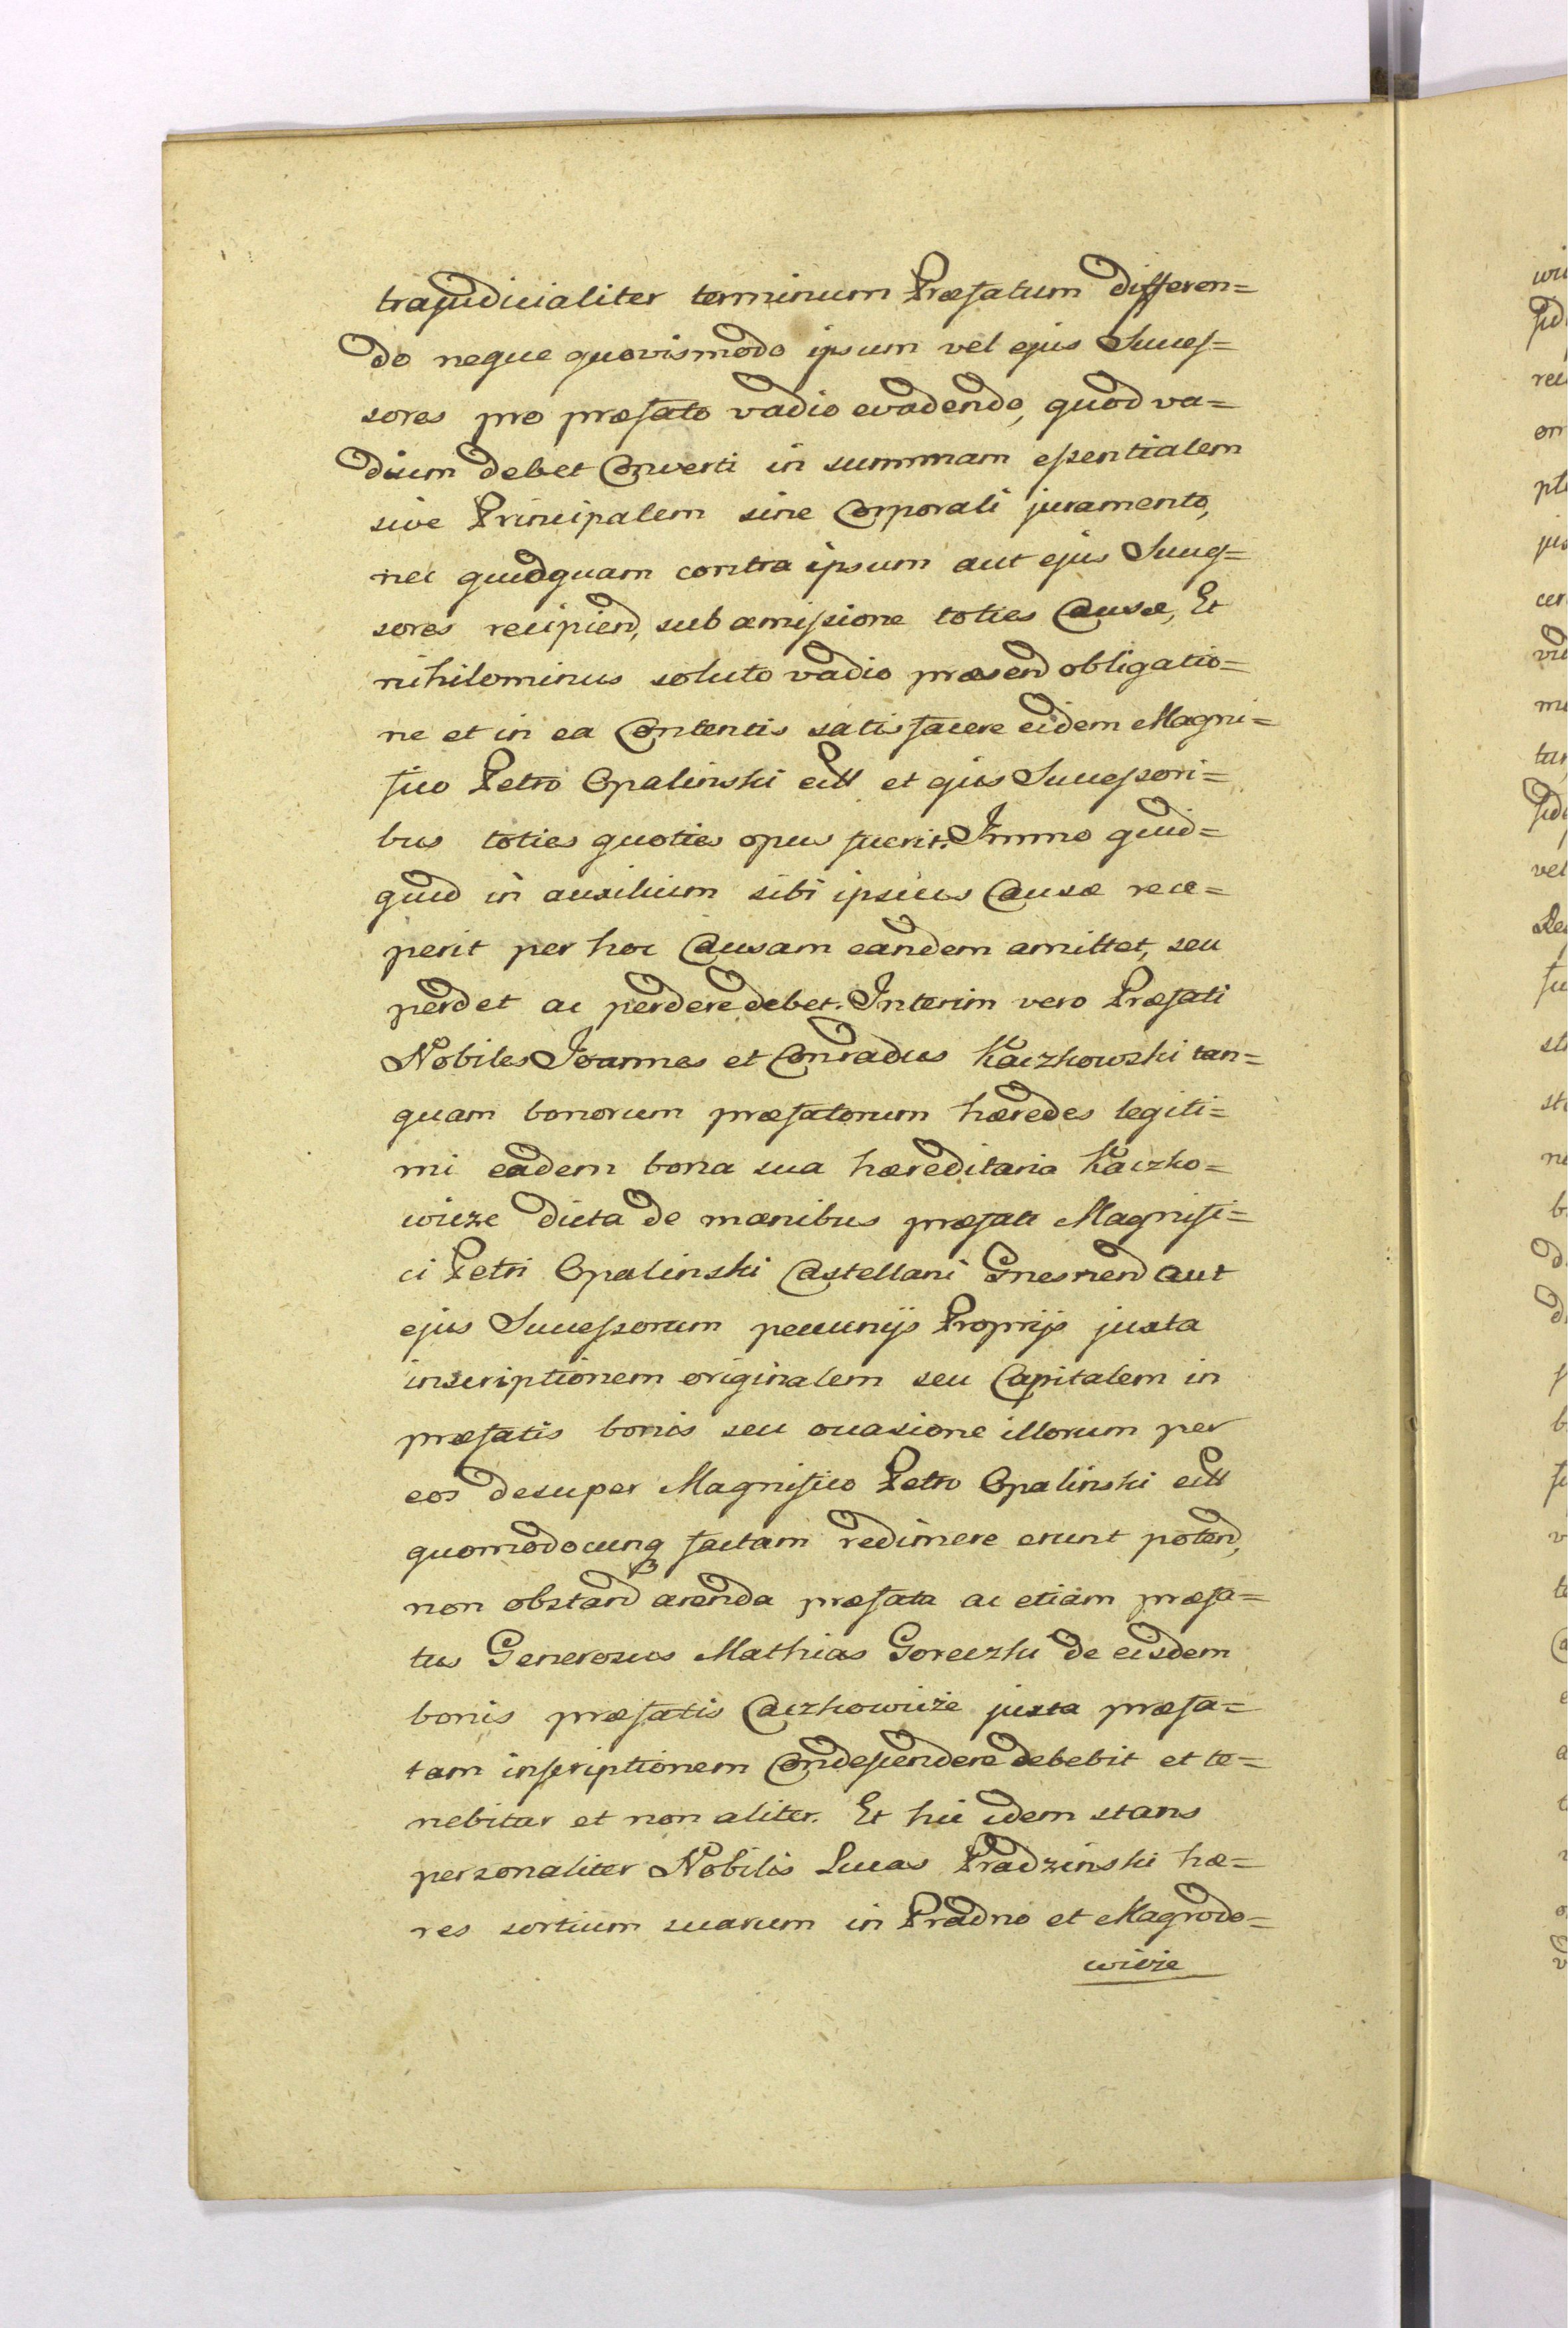 trajudicialiter terminum Præfatum differen=
do neque quovismodo ipsum vel ejus Succes=
sores pro præfato vadio evadendo, quod va=
dium debet Converti in summam essentialem
sive Principalem sine Corporali juramento,
nec quidquam contra ipsum aut ejus Succes=
sores recipiend, sub amissione toties Causæ, Et
nihilominus soluto vadio præsend obligatio=
ne et in ea Contentis satisfacere eidem Magni=
fico Petro Opalinski
et ejus Successori=
bus toties quoties opus fuerit. Immo quid=
quid in auxilium sibi ipsius Causæ rece=
perit per hoc Causam eandem amittet, seu
perdet ac perdere debet. Interim vero Præfati
Nobiles Joannes et Conradus Kaczkowski tan=
quam bonorum præfatorum hæredes legiti=
mi eadem bona sua hæreditaria Kaczko=
wicze dicta de manibus præfati Magnifi=
ci Petri Opalinski Castellani Gnesnend aut
ejus Successorum pecunijs Proprijs juxta
inscriptionem originalem seu Capitalem in
præfatis bonis seu occasione illorum per
eos desuper Magnifico Petro Opalinski
quomodocunq factam redimere erunt potend,
non obstand arenda præfata ac etiam præfa=
tus Generosus Mathias Goreczki de eisdem
bonis præfatis Caczkowicze juxta præfa=
tam inscriptionem Condescendere debebit et te=
nebitur et non aliter. Et hic idem stans
personaliter Nobilis Lucas Pradzinski hæ=
res sortium suarum in Pradno et Magrodo=
wicze